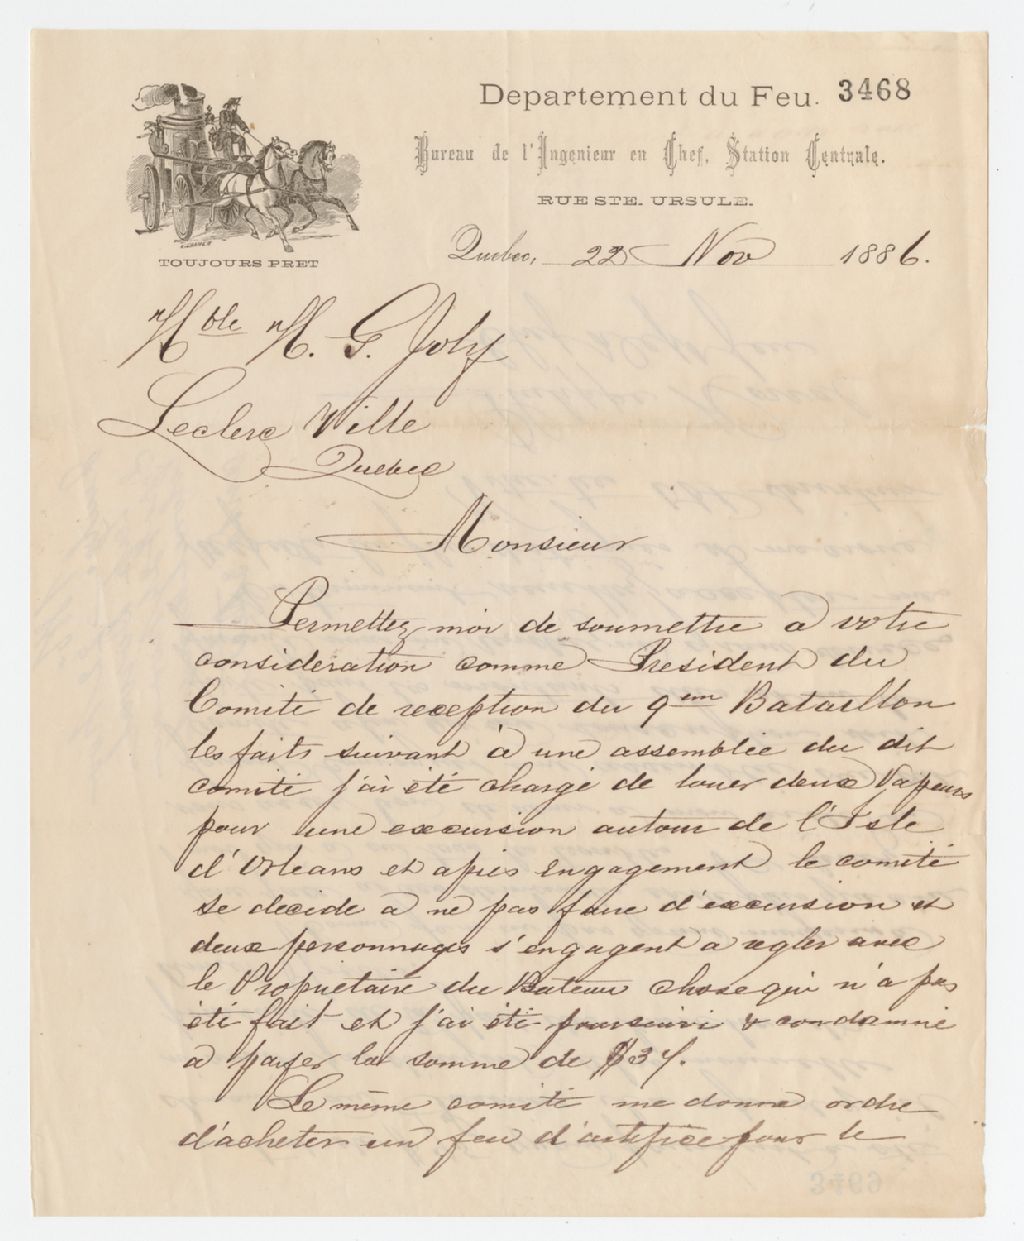 Departement du Feu. 3468
Bureau de l'Ingenieur en Chef, Station Centrale.
RUE STE. URSULE.
TOUJOURS PRET
Quebec, 22 Nov 1886.
Hble H. G. Joly
Leclerc Ville
Quebec
Monsieur
Permettez moi de soumettre a votre
consideration comme President du
Comité de reception du 9em Bataillon
les faits suivant à une assemblée du dit
comité j'ai été chargé de louer deux Vapeurs
pour une excursion autour de l'Isle
d'Orleans et après engagement le comité
se decide a ne pas faire d'excursion et
deux personnages s'engagent a regler avec
le Propriétaire du Bateau chose qui n'a pas
été fait et j'ai été poursuivi & condamné
a payer la somme de
Le même comité me donna ordre
d'acheter un feu d'artifice pour le
3469